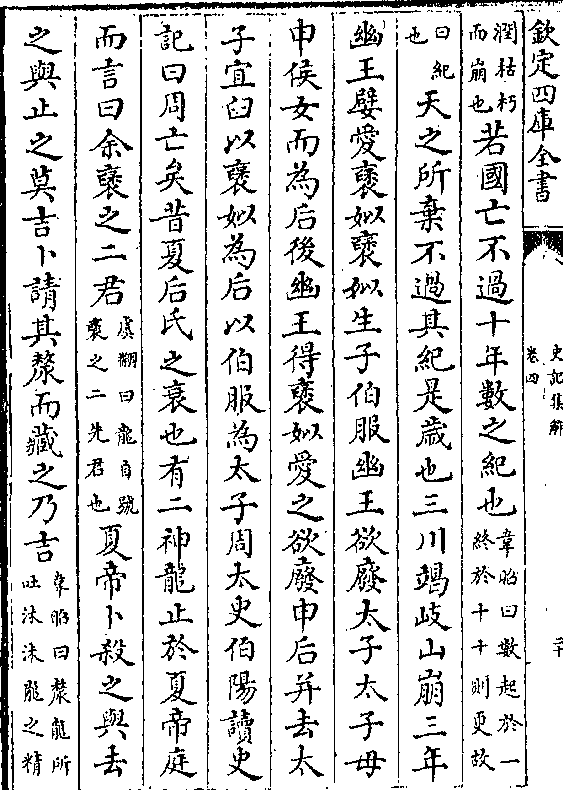 欽定四庫全書
史記集解
卷四
二十
潤枯朽
而崩也
若國亡不過十年數之紀也
韋昭曰數起於一
終於十十則更故
曰紀
也
天之所棄不過其紀是歲也三川竭岐山崩三年
幽王嬖愛褒姒褒姒生子伯服幽王欲廢太子太子母
申侯女而為后後幽王得褒姒愛之欲廢申后并去太
子宜臼以褒姒為后以伯服為太子周太史伯陽讀史
記曰周亡矣昔夏后氏之衰也有二神龍止於夏帝庭
而言曰余褒之二君
虞翻曰龍自號
褒之二先君也
夏帝卜殺之與去
之與止之莫吉卜請其漦而藏之乃吉
韋昭曰漦龍所
吐沫沫龍之精